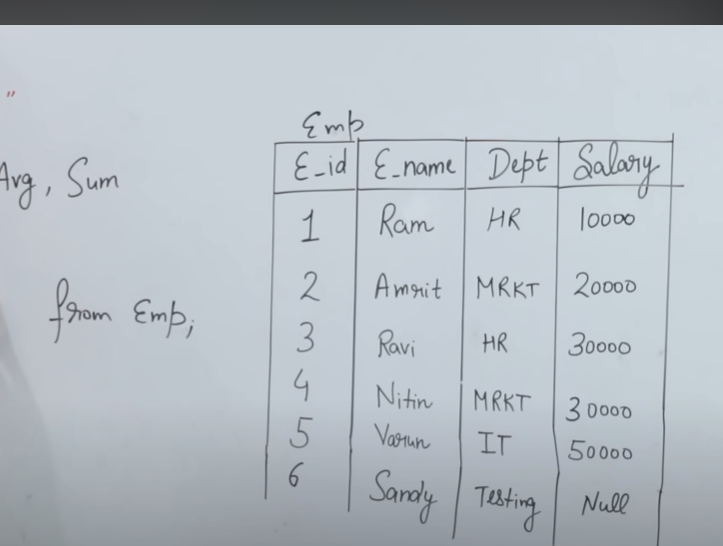 "
Avg, Sum
from Emp;
Emp
E_id E_name Dept Salary
1 Ram HR 10000
2 Amrit MRKT 20000
3 Ravi HR 30000
4 Nitin MRKT 30000
5 Varun IT 50000
6 Sandy Testing Null